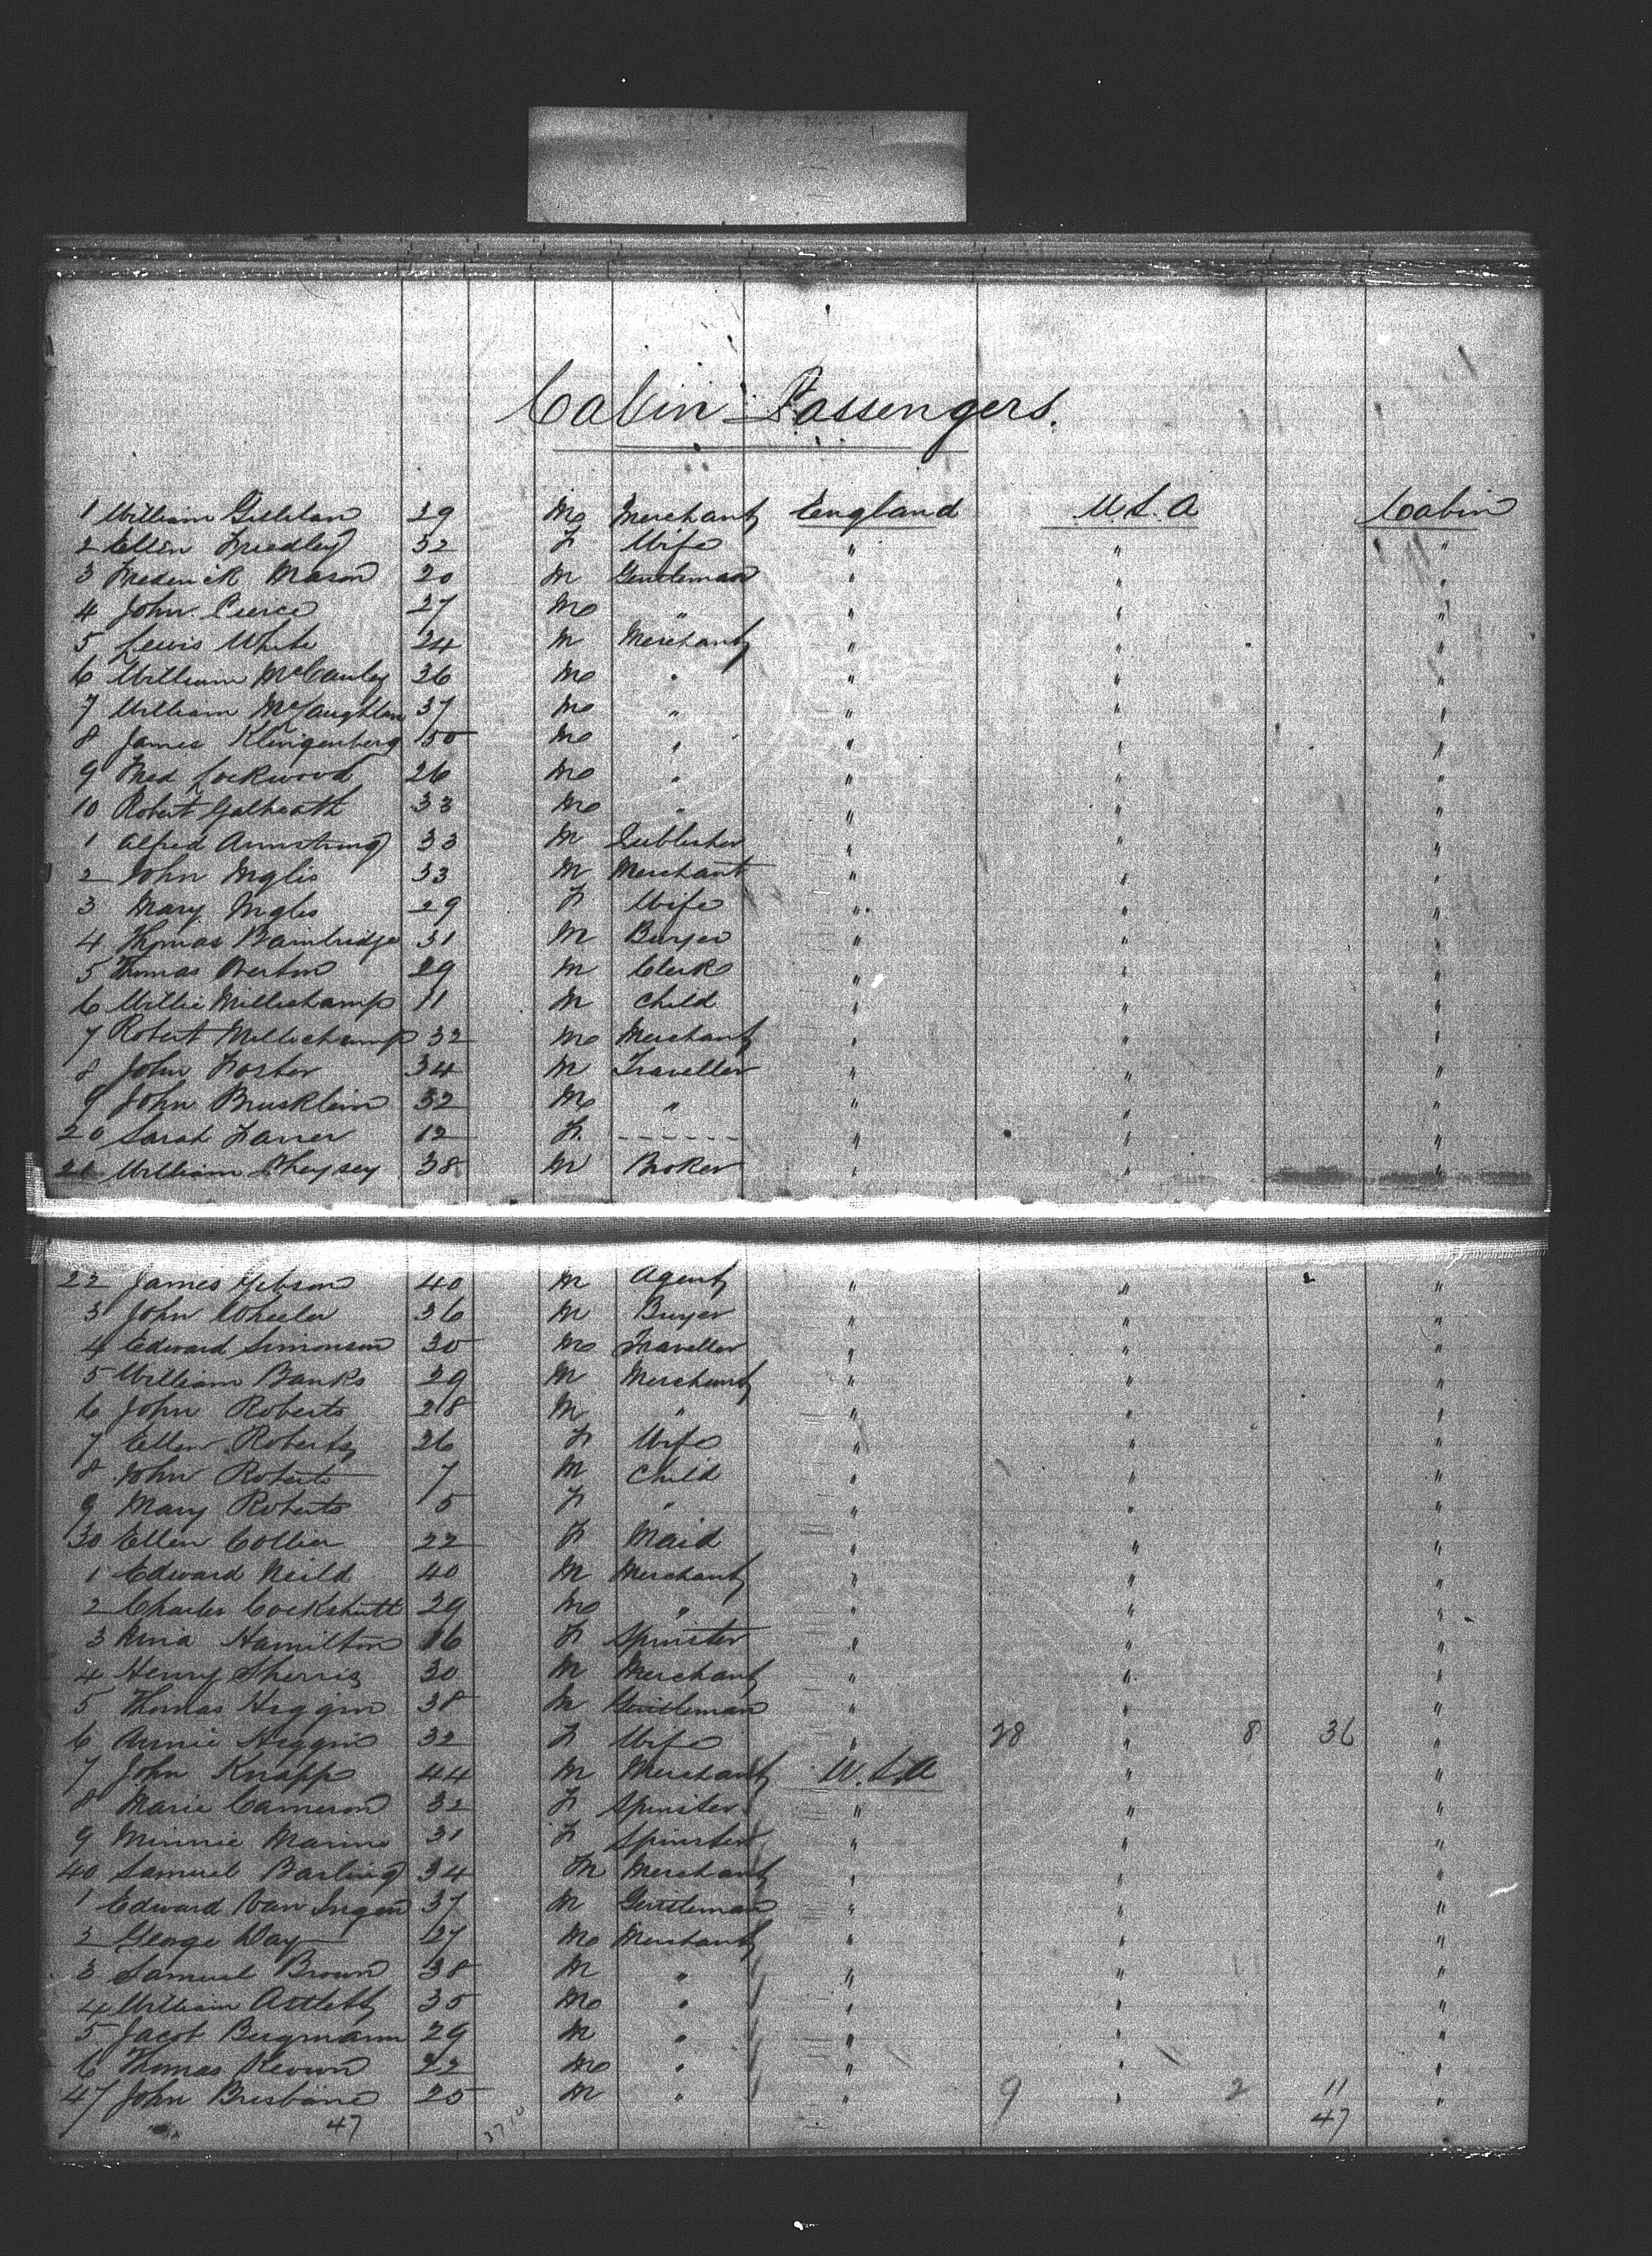 Cabin Passengers.
1 William Gillilan 29 M Merchant England U.S.A Cabin
2 Ellen Friedley 32 F Wife " " "
3 Frederick Mason 20 M Gentleman " " "
4 John Pierce 27 M " " " "
5 Lewis White 24 M Merchant " " "
6 William McCauley 36 M " " " "
7 William McLaughlan 37 M " " " "
8 James Klingenberg 50 M " " " "
9 Fred Lockwood 26 M " " " "
10 Robert Galbeath 33 M " " " "
1 Alfred Armstrong 33 M Publisher " " "
2 John Inglis 33 M Merchant " " "
3 Mary Inglis 29 F Wife " " "
4 Thomas Bainbridge 31 M Buyer " " "
5 Thomas 29 M Clerk " " "
6 Willie Millichamp 11 M Child " " "
7 Robert Millichamp 32 M Merchant " " "
8 John Foster 34 M Traveller " " "
9 John 32 M " " " "
20 Sarah Farrer 12 F. ------ " " "
21 William 38 M Broker " " "
22 James Gibson 40 M Agent " " "
3 John Wheeler 36 M Buyer " " "
4 Edward Simonson 30 M Traveller " " "
5 William Banks 29 M Merchant " " "
6 John Roberts 28 M " " " "
7 Ellen Roberts 26 F Wife " " "
8 John Roberts 7 M Child " " "
9 Mary Roberts 5 F " " " "
30 Ellen Collier 22 F Maid " " "
1 Edward Neild 40 M Merchant " " "
2 Charles Cockshutt 29 M " " " "
3 Hamilton 16 F Spinster " " "
4 Henry Sherris 30 M Merchant " " "
5 Thomas Higgin 38 M Gentleman " " "
6 Annie Higgin 32 F Wife " 28 " 8 36 "
7 John Knapp 44 M Merchant U.S.A " "
8 Marie Cameron 32 F Spinster " " "
9 Minnie Marine 31 F Spinster " " "
40 Samuel Barling 34 M Merchant " " "
1 Edward Van Ingen 37 M Gentleman " " "
2 George Day 27 M Merchant " " "
3 Samuel Brown 38 M " " " "
4 William 35 M " " " "
5 Jacob Bergmann 29 M " " " "
6 Thomas Keown 22 M " " " "
47 John Brisbane 25 M " " 9 " 2 11 "
47 47